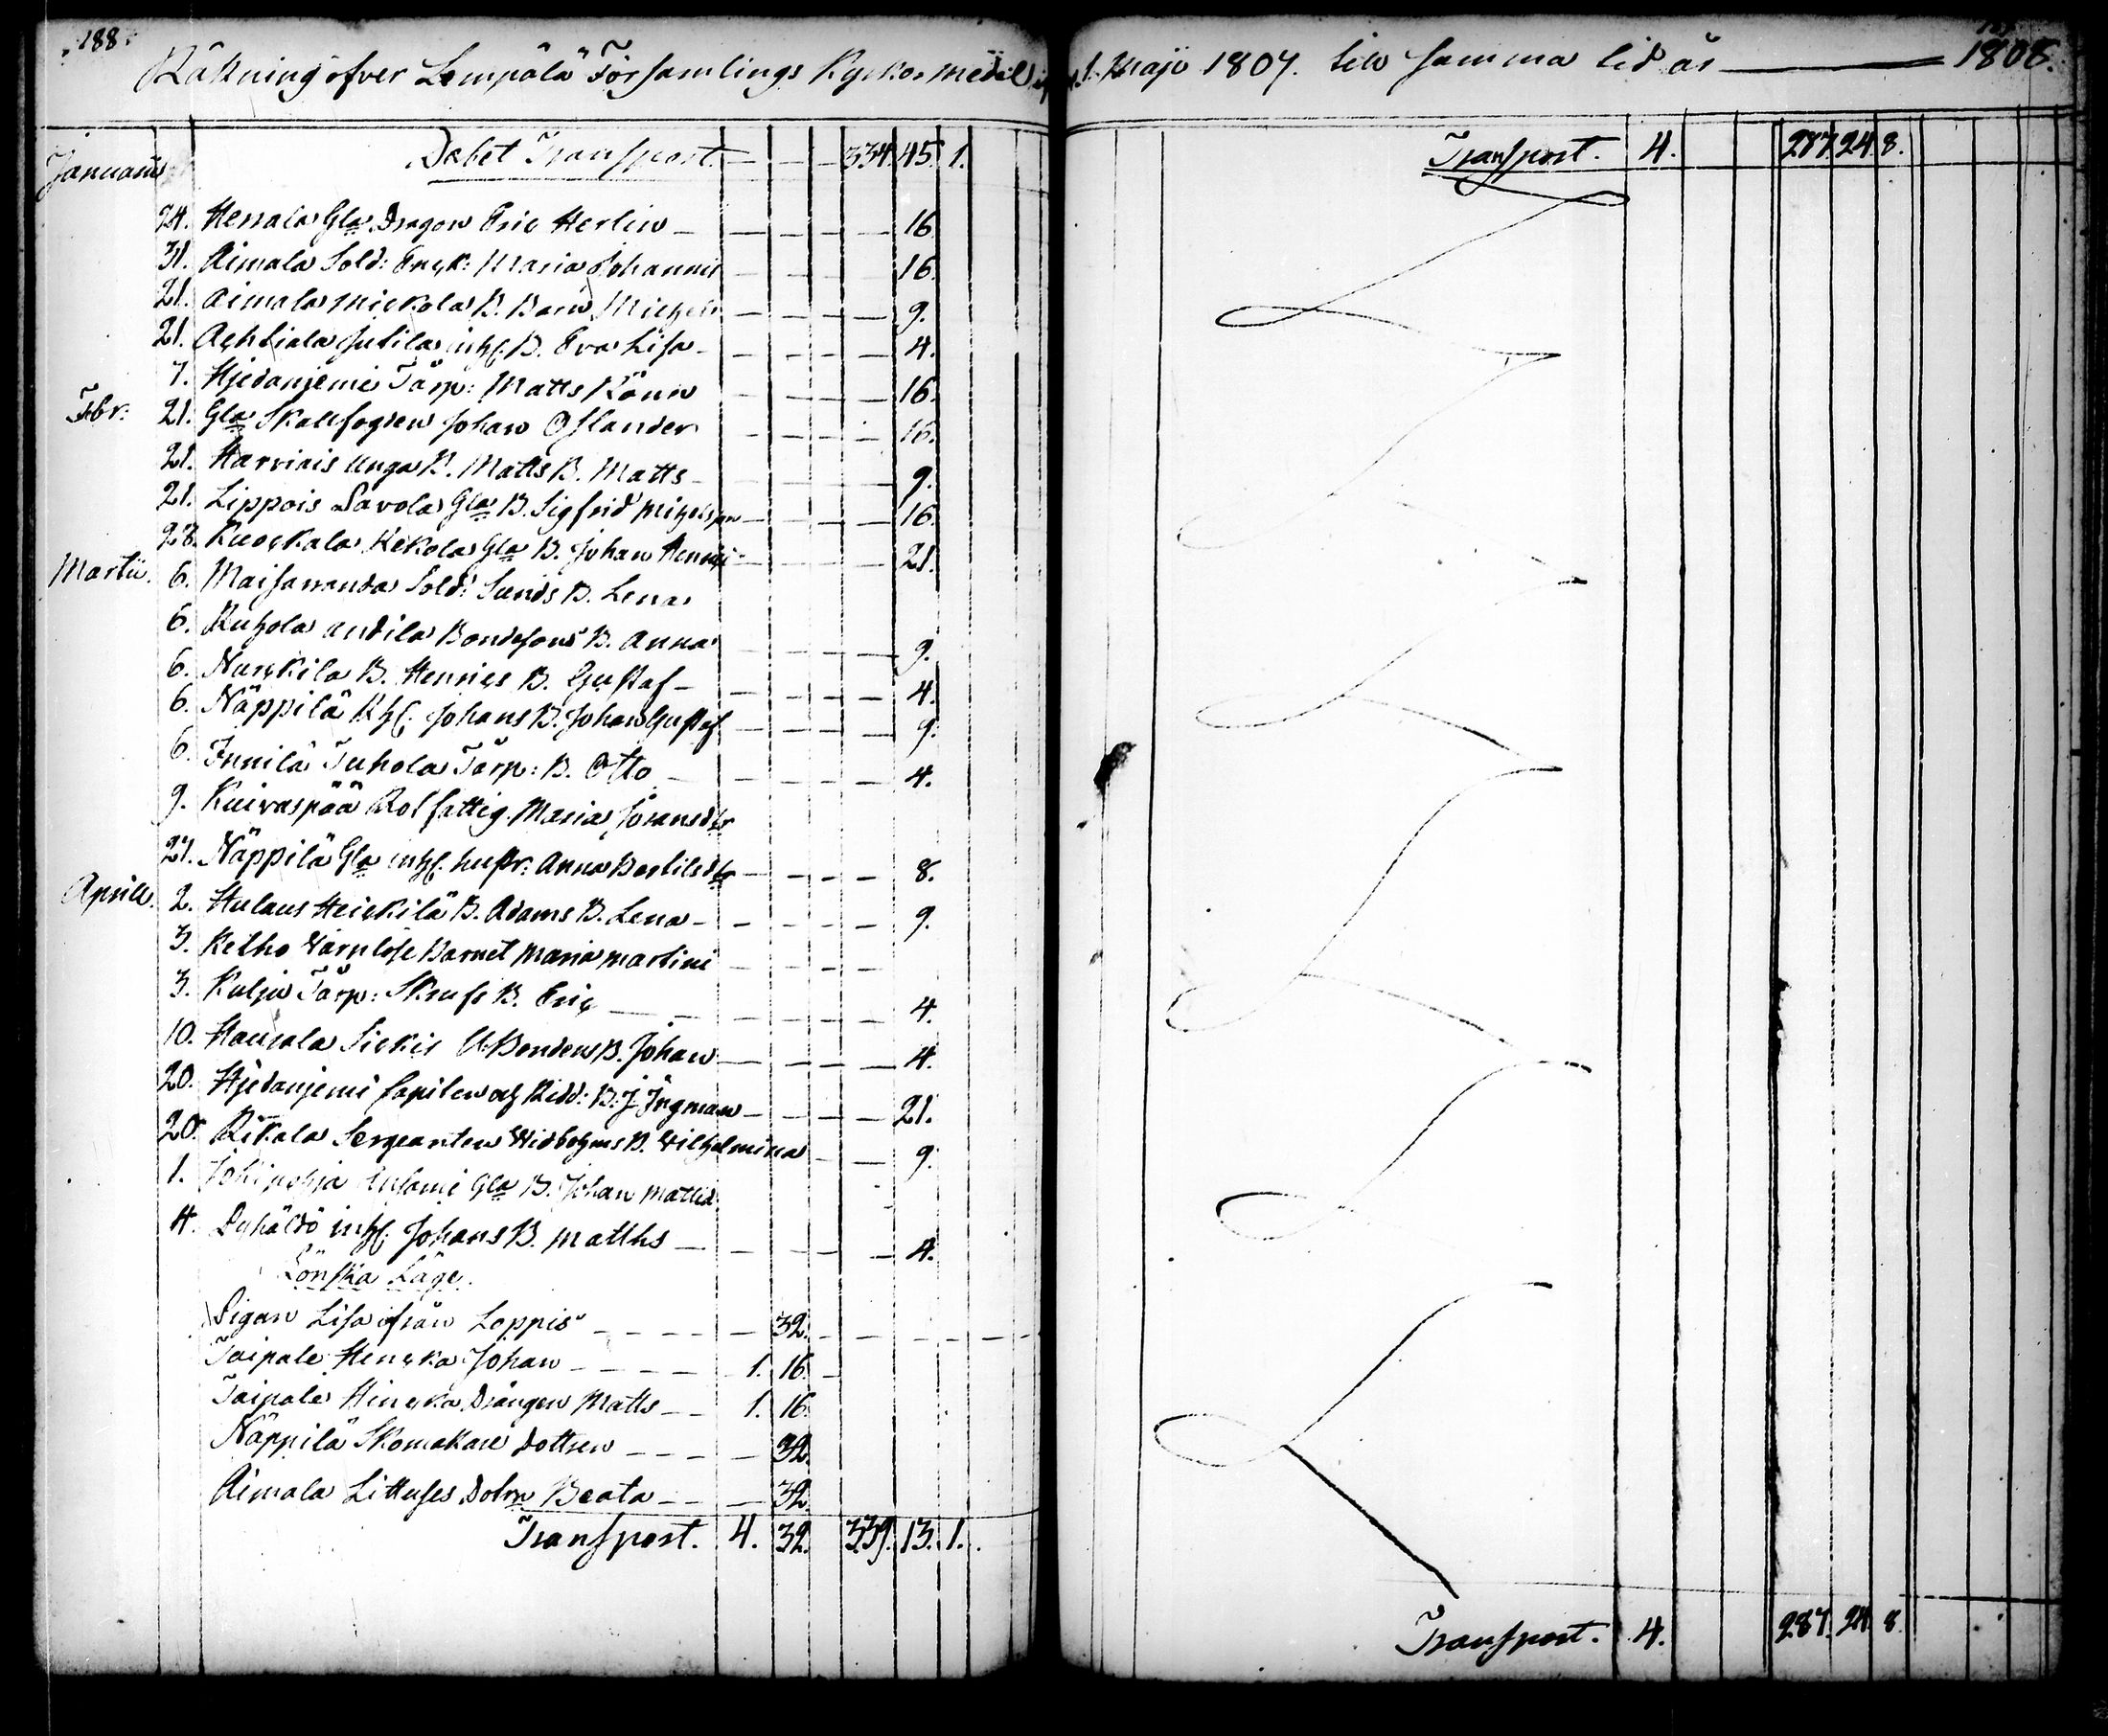 188.
Räkning öfver Lempälä Församlings Kyrkos medel 1. Maji 1807. till samma tid år 1808.
Januarius Debet Transport. 334. 45. 1.
24. Herrala Gla Dragon Eric Herlin 16.
31. Aimala Sold: Enck: Maria Johannis 16.
21. Aimala Mickola B. Barn Michel 9.
21. Achtiala Jutila inh. B. Eva Lisa 4.
7. Hjedanjemi Torp: Matts Könn 16.
Febr: 21. Gla Skallfogden Johan Oslander 16.
21. Harviais unga B. Matts B. Matts 9.
21. Lippois Savola Gla B. Sigfrid Michelsson 16.
28. Kuockala Kekola Gla B. Johan Henrici 21.
Martii. 6. Maisaranda Sold: Sunds B. Lena
6. Kuhola Andila Bondesons B. Anna 9.
6. Nurckila B. Henrics B. Gustaf 4.
6. Näppilä Johans B. Johan Gustaf 9.
6. Innilä Tuhola Torp: B. Otto 4.
9. Kuivaspää Rotfattig Maria Göransdr
27. Näppilä Gla inh. hustr: Anna Bertilsdr 8.
Aprill. 2. Hulaus Heickilä B. Adams B. Lena 9.
3. Kelho Värnlöse Barnet Maria Martini
3. Kulju Torp: Skrufs B. Eric 4.
10. Hauvala Sickis U. Bondens B. Johan 4.
20. Hjedanjemi Capiten och Ridd: B: J. Ingman 21.
20. Rikala Sergeanten Widbohms B. Wilhelmina 9.
1. Jokipohja Gla B. Johan Matts
4. inh. Johans B. Matths 4.
Lönska Läge.
Pigan Lisa ifrån Loppis 32.
Taipale Hencka Johan 1. 16.
Taipale Hencka Drängen Matts 1. 16.
Näppilä Skomakare dottren 32.
Aimala Littuses Dotra Beata 32.
Transport. 4. 32. 339. 13. 1.
Transport. 4. 287. 24. 8.
Transport. 4. 287. 24. 8.